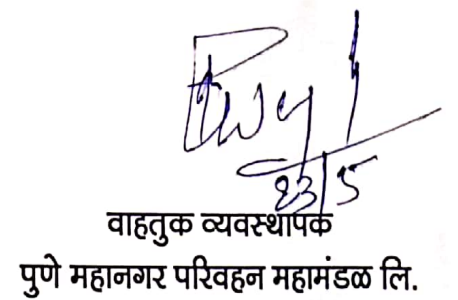 २३/५
वाहतुक व्यवस्थापक
पुणे महानगर परिवहन महामंडळ लि.